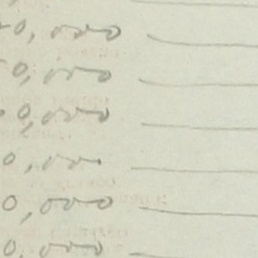 0,000
0,000
0,000
0,00.
0,000
0,000